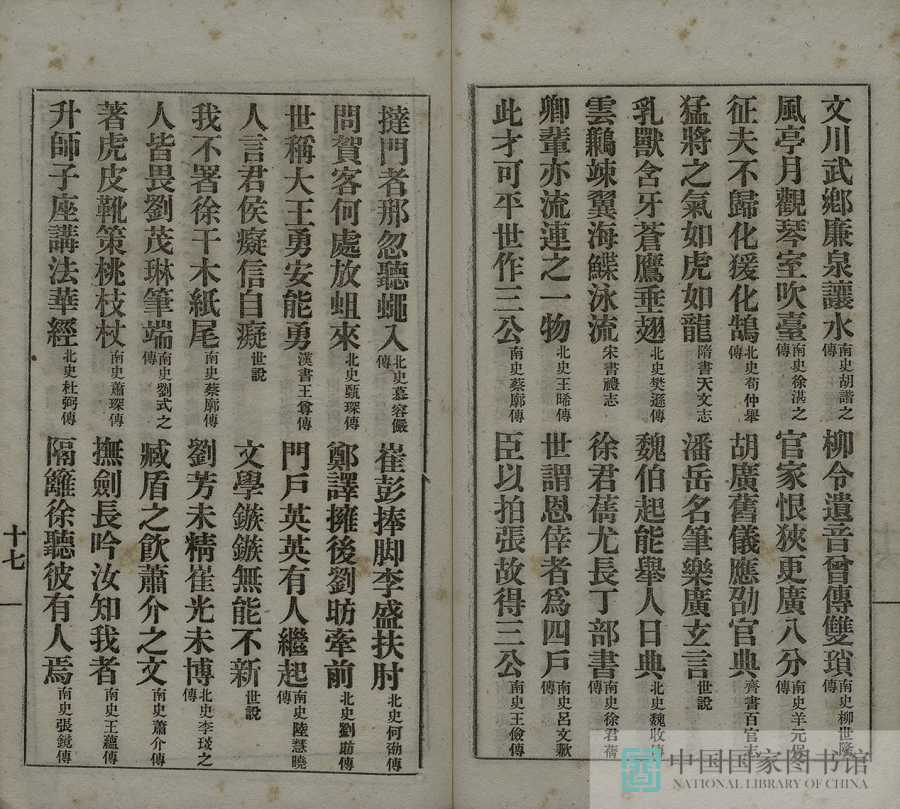 文川武鄉廉泉讓水南史胡諧之傳 柳令遺音曾傳雙瑣南史柳世隆傳
風亭月觀琴室吹臺南史徐湛之傳 官家恨狹更廣八分南史羊元保傳
征夫不歸化猨化鵠北史荀仲舉傳 胡廣舊儀應劭官典齊書百官志
猛將之氣如虎如龍隋書天文志 潘岳名筆樂廣玄言世說
乳獸含牙蒼鷹垂翅北史樊遜傳 魏伯起能舉人日典北史魏收傳
雲鶼竦翼海鰈泳流宋書禮志 徐君蒨尤長丁部書南史徐君蒨傳
卿輩亦流連之一物北史王晞傳 世謂恩倖者爲四戶南史呂文歉傳
此才可平世作三公南史蔡廓傳 臣以拍張故得三公南史王儉傳
撻門者那忽聽蠅入北史慕容儼傳 崔彭捧脚李盛扶肘北史何劭傳
問賀客何處放蛆來北史甄琛傳 鄭譯擁後劉昉牽前北史劉昉傳
世稱大王勇安能勇漢書王尊傳 門戶英英有人繼起南史陸慧曉傳
人言君侯癡信自癡世說 文學鏃鏃無能不新世說
我不署徐干木紙尾南史蔡廓傳 劉芳未精崔光未博北史李琰之傳
人皆畏劉茂琳筆端南史劉式之傳 臧盾之飮蕭介之文南史蕭介傳
著虎皮靴策桃枝杖南史蕭琛傳 撫劍長吟汝知我者南史王蘊傳
升師子座講法華經北史杜弼傳 隔籬徐聽彼有人焉南史張鏡傳
十七
中国国家图书馆
NATIONAL LIBRARY OF CHINA